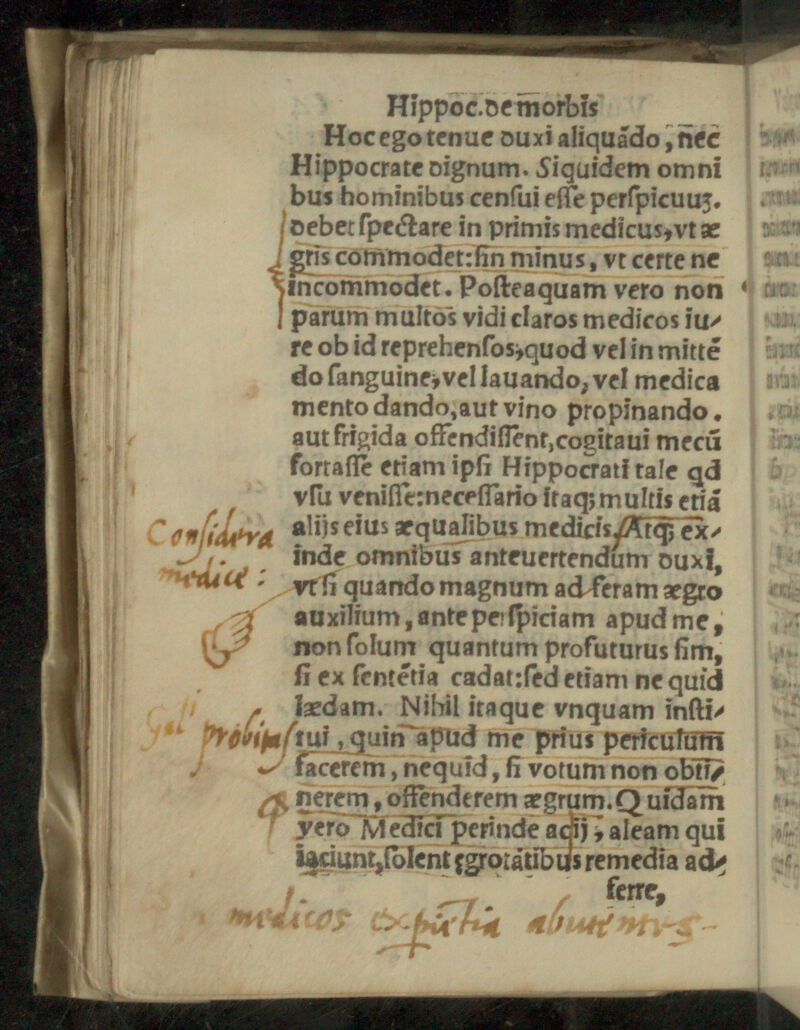 Hippoc.de morbis
Hoc ego tenue duxi aliquādo, nec
Hippocrate dignum. Siquidem omni
bus hominibus censui esse perspicuuȝ.
debet spectare in primis medicus, vt æ
gris commodet: sin minus, vt certe ne
incommodet. Posteaquam vero non
parum multos vidi claros medicos iu⸗
re ob id reprehensos, quod vel in mittē
do sanguine, vel lauando, vel medica
mento dando, aut vino propinando.
aut frigida offendissent, cogitaui mecū
fortasse etiam ipsi Hippocrati tale qd
vsu venisse: necessario itaqꝫ multis etiā
alijs eius æqualibus medicis. Atqꝫ ex⸗
inde omnibus anteuertendum duxi,
vt si quando magnum ad feram ægro
auxilium, ante perspiciam apud me,
non solum quantum profuturus sim,
si ex sentētia cadat: sed etiam ne quid
lædam. Nihil itaque vnquam insti⸗
tui, quin apud me prius periculum
facerem, nequid, si votum non obti⸗
nerem, offenderem ægrum. Quidam
vero Medici perinde acij, aleam qui
iaciunt, solent ęgrotātibus remedia ad⸗
ferre,
Considera
medice:
medicos